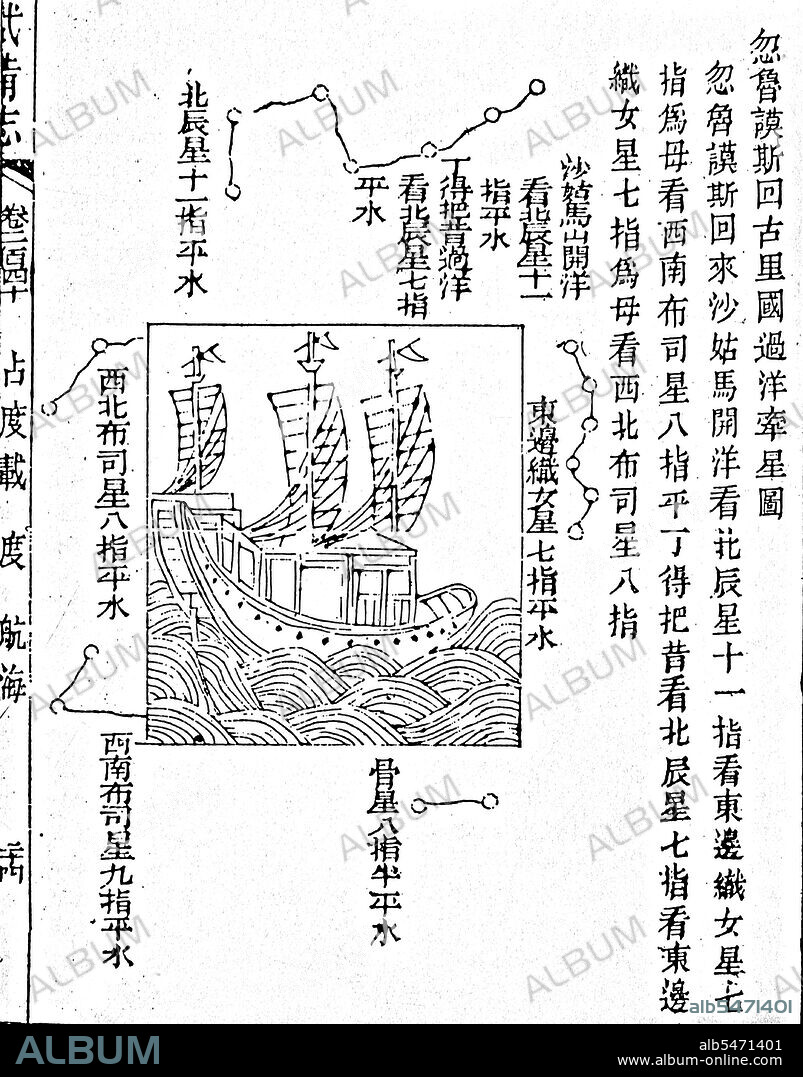 忽魯謨斯回古里國過洋牽星圖
忽魯謨斯回來沙姑馬開洋看北辰星十一指看東邊織女星七
指為母看西南布司星八指平丁得把昔看北辰星七指看東邊
織女星七指為母看西北布司星八指
沙姑馬山開洋
看北辰星十一
指平水
丁得把昔過洋
看北辰星七指
平水
北辰星十一指平水
東邊織女星七指平水
西北布司星八指平水
西南布司星九指平水
骨星八指半平水
武備志
卷二百四十
占度載
度
航海
ALBUM
alb5471401
ALBUM
alb5471401
www.album-online.com